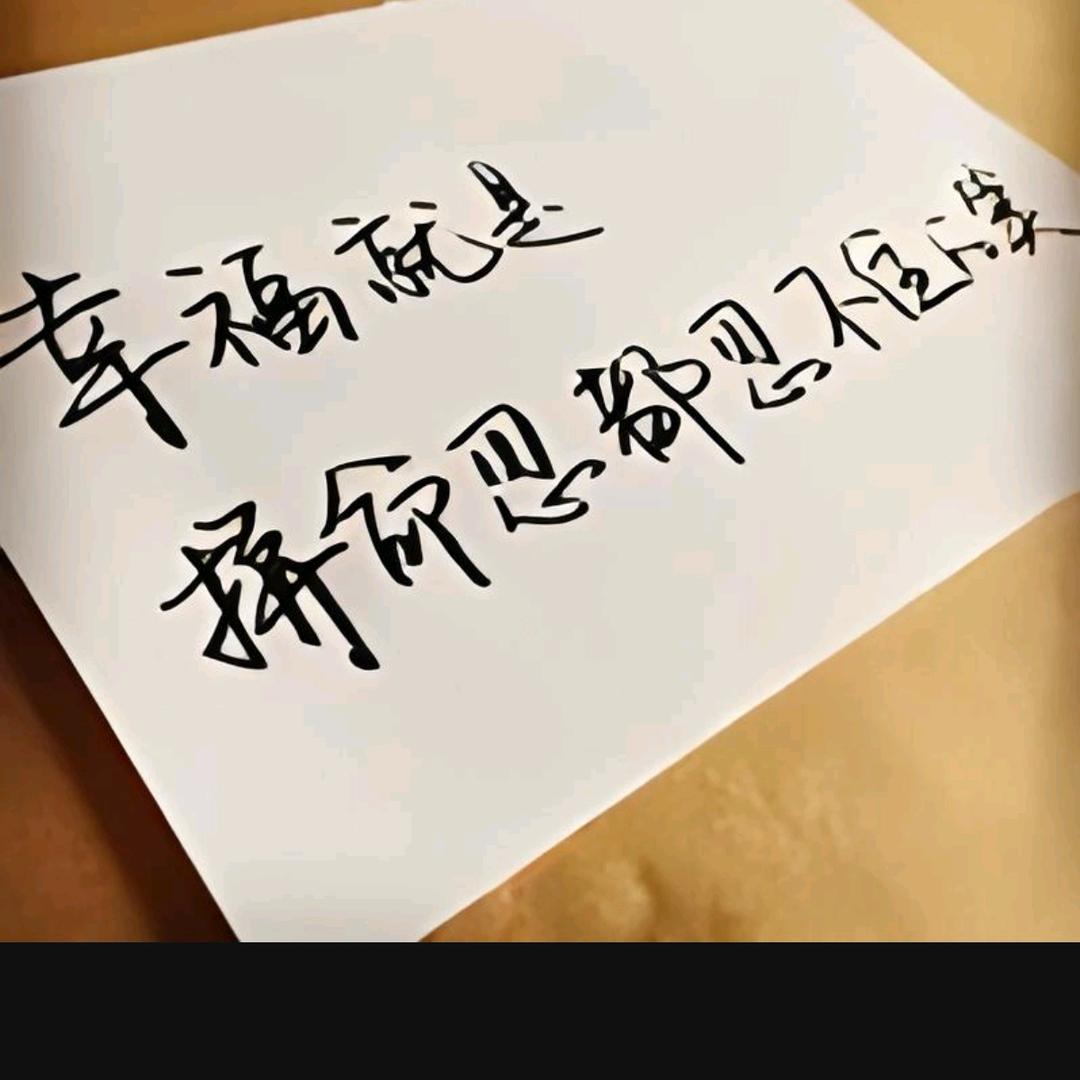 幸福就是
拼命忍都忍不住笑